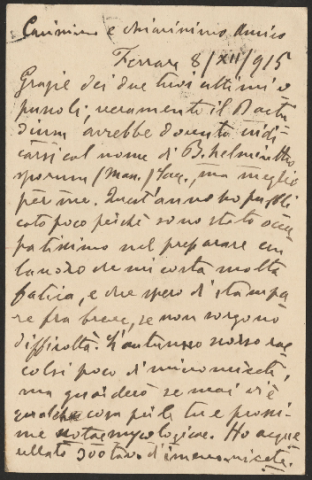 Carissimo e chiarissimo Amico
Ferrara 8/XII/915
Grazie dei due tuoi ultimi o
puscoli; veramente il Bactri
dium avrebbe dovuto indi
carsi col nome di B. helmintho
sporum (Man.) Sacc., ma meglio
per me. Quest'anno ho pubbli
cato poco poichè sono stato occu
patissimo nel preparare un
lavoro che mi costa molta
fatica, e che spero di stampa
re fra breve, se non sorgono
difficoltà. L'autunno scorso rac
colsi poco di micromiceti,
ma guarderò se mai vi è
qualche cosa per le tue prossi
me notae mycologicae. Ho acque
rellato 300 tav. di imenomiceti.